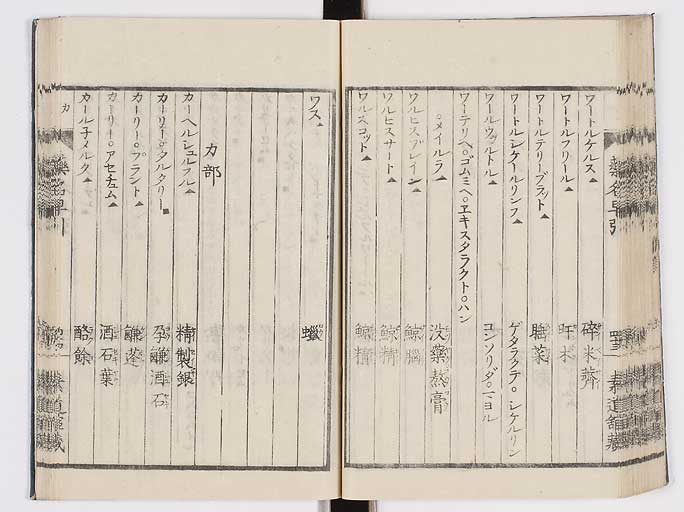 ワートルケルス▲ 碎米薺
ワートルフリール▲
ワートルテリーブラット▲ 睡菜
ワートルシケールリンフ▲ ゲタラクテ。シケルリン
ワールウヲルトル▲ コンソリダ。
ワーテリヘ。ゴムミヘ。ヱキスタラクト。ハン
。メイルラ▲ 没藥熬膏
ワルヒスブレイン▲ 鯨腦
ワルヒスサート▲ 鯨精
ワルスコット▲ 鯨精
ワス▲ 蠟
カ部
カーヘルシュルフル▲ 精製銀
カーリー。タルタリー■ 孕鹻酒石
カーリー。プラント▲ 鹻蓬
カーリー。アセチュム▲ 酒石葉
カール子メルク▲ 酪餘
藥名早引
カ